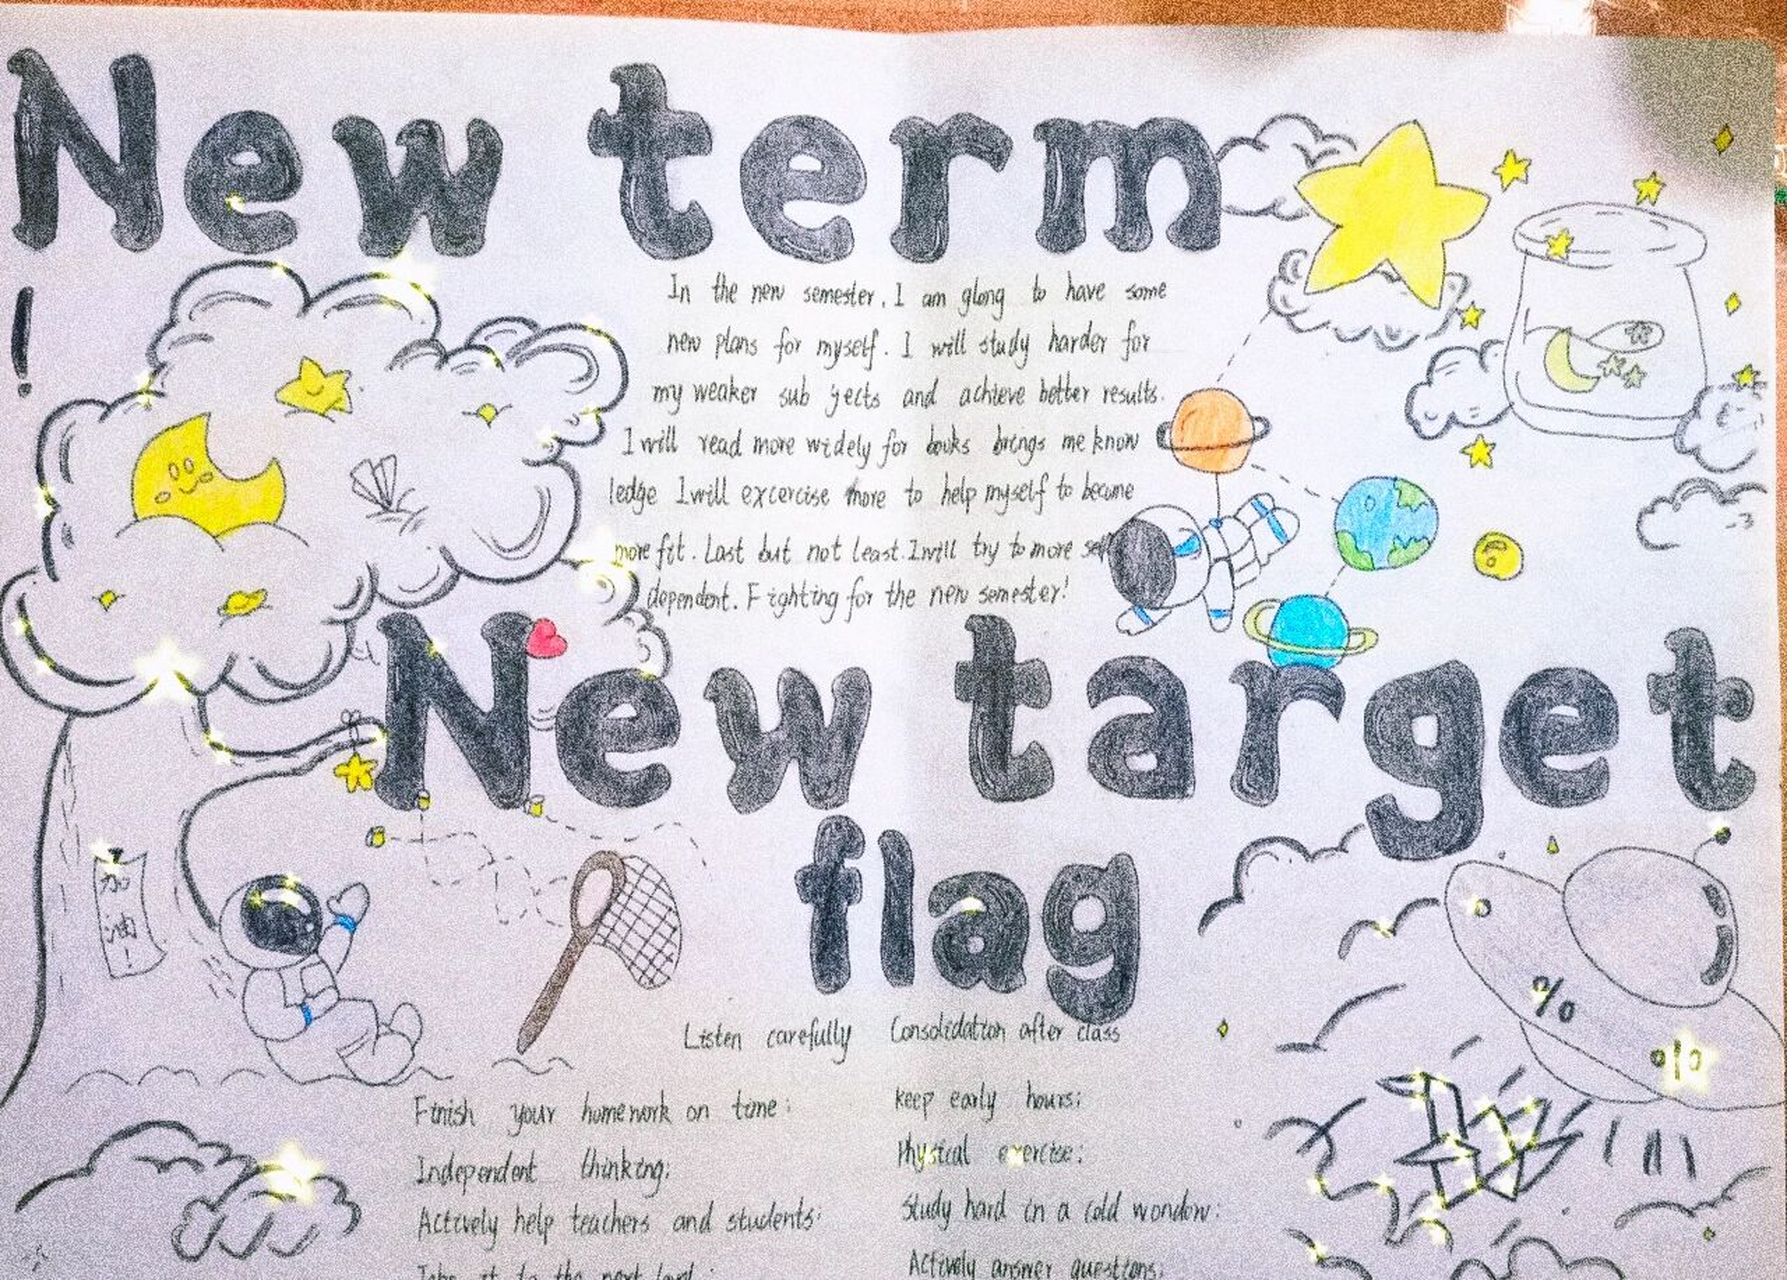 New term
!
In the new semester, I am glong to have some
new plans for myself. I will study harder for
my weaker sub jects and achieve better results.
I will read more widely for books brings me know
ledge I will excercise more to help myself to become
more fit. Last but not least. I will try to more self
dependent. Fighting for the new semester!
New target
flag
加
油
!
Listen carefully Consolidation after class
Finish your homework on time;
keep early hours;
Independent thinking;
Physical exercise;
Actively help teachers and students;
Study hard in a cold wondow;
Take it to the next level;
Actively answer questions;
%
%